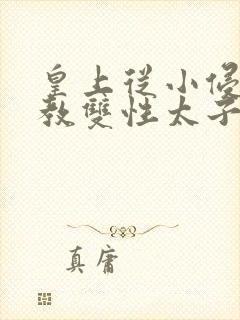 皇上從小
教雙性太子
真庸